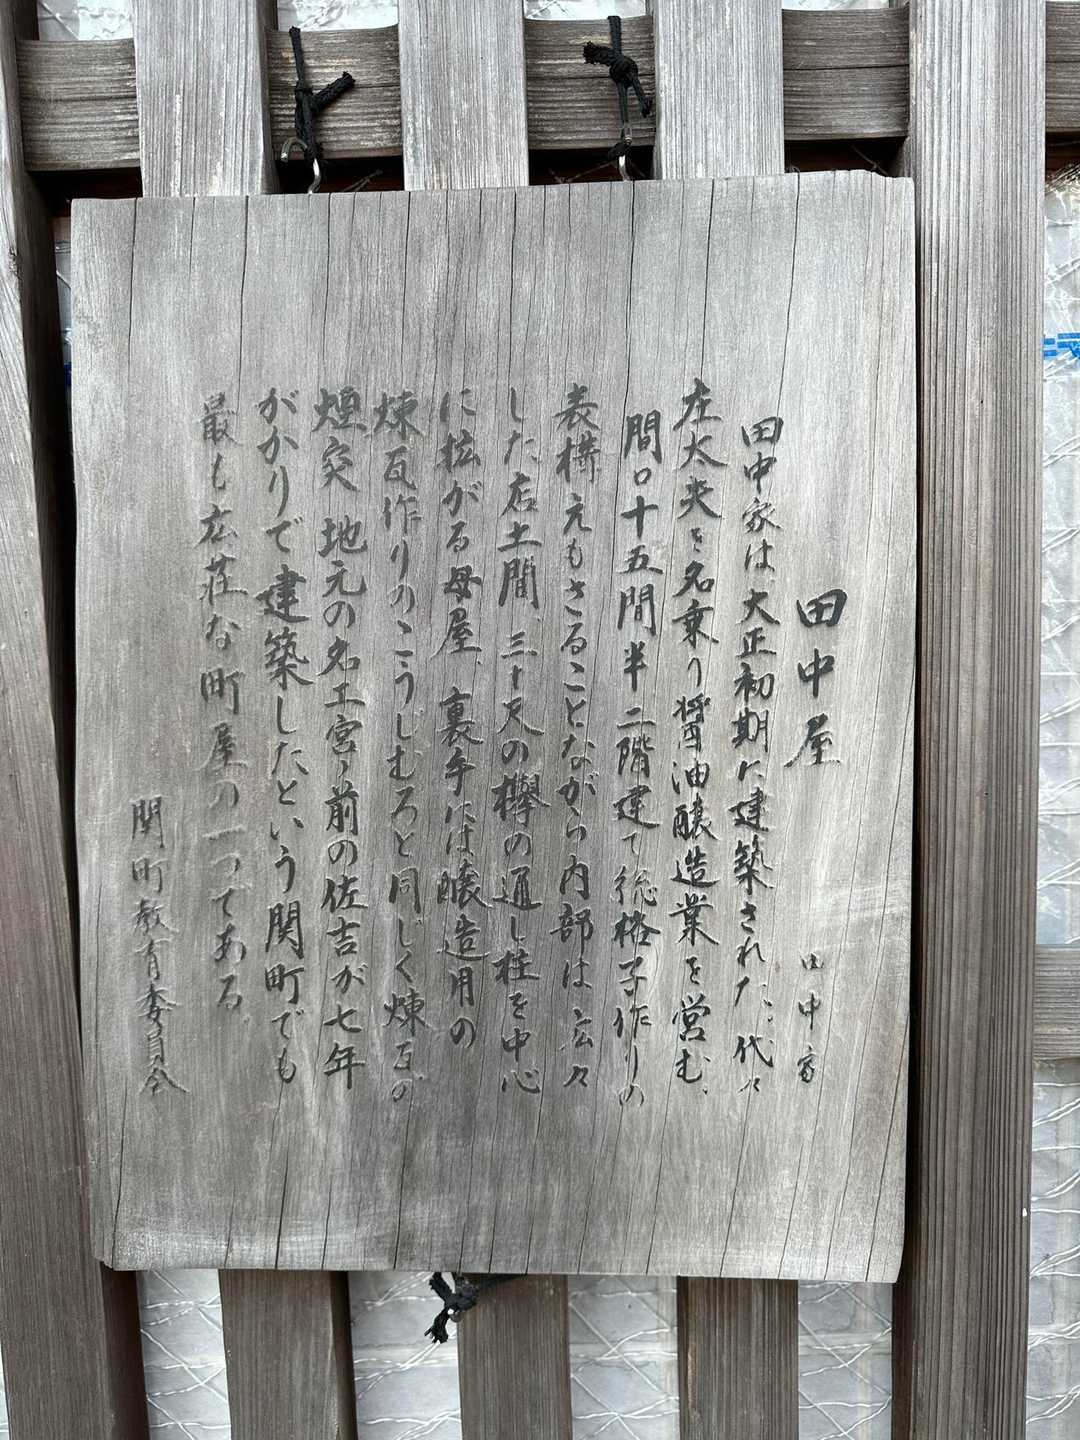 田中屋
田中家
田中家は、大正初期に建築された。代々
庄太夫を名乗り醤油醸造業を営む、
間口十五間半二階建て総格子作りの
表構えもさることながら内部は広々
した店土間、三十尺の欅の通し柱を中心
に拡がる母屋、裏手には醸造用の
煉瓦作りのこうじむろと同じく煉瓦の
煙突 地元の名工宮ノ前の佐吉が七年
がかりで建築したという関町でも
最も広荘な町屋の一つである
関町教育委員会